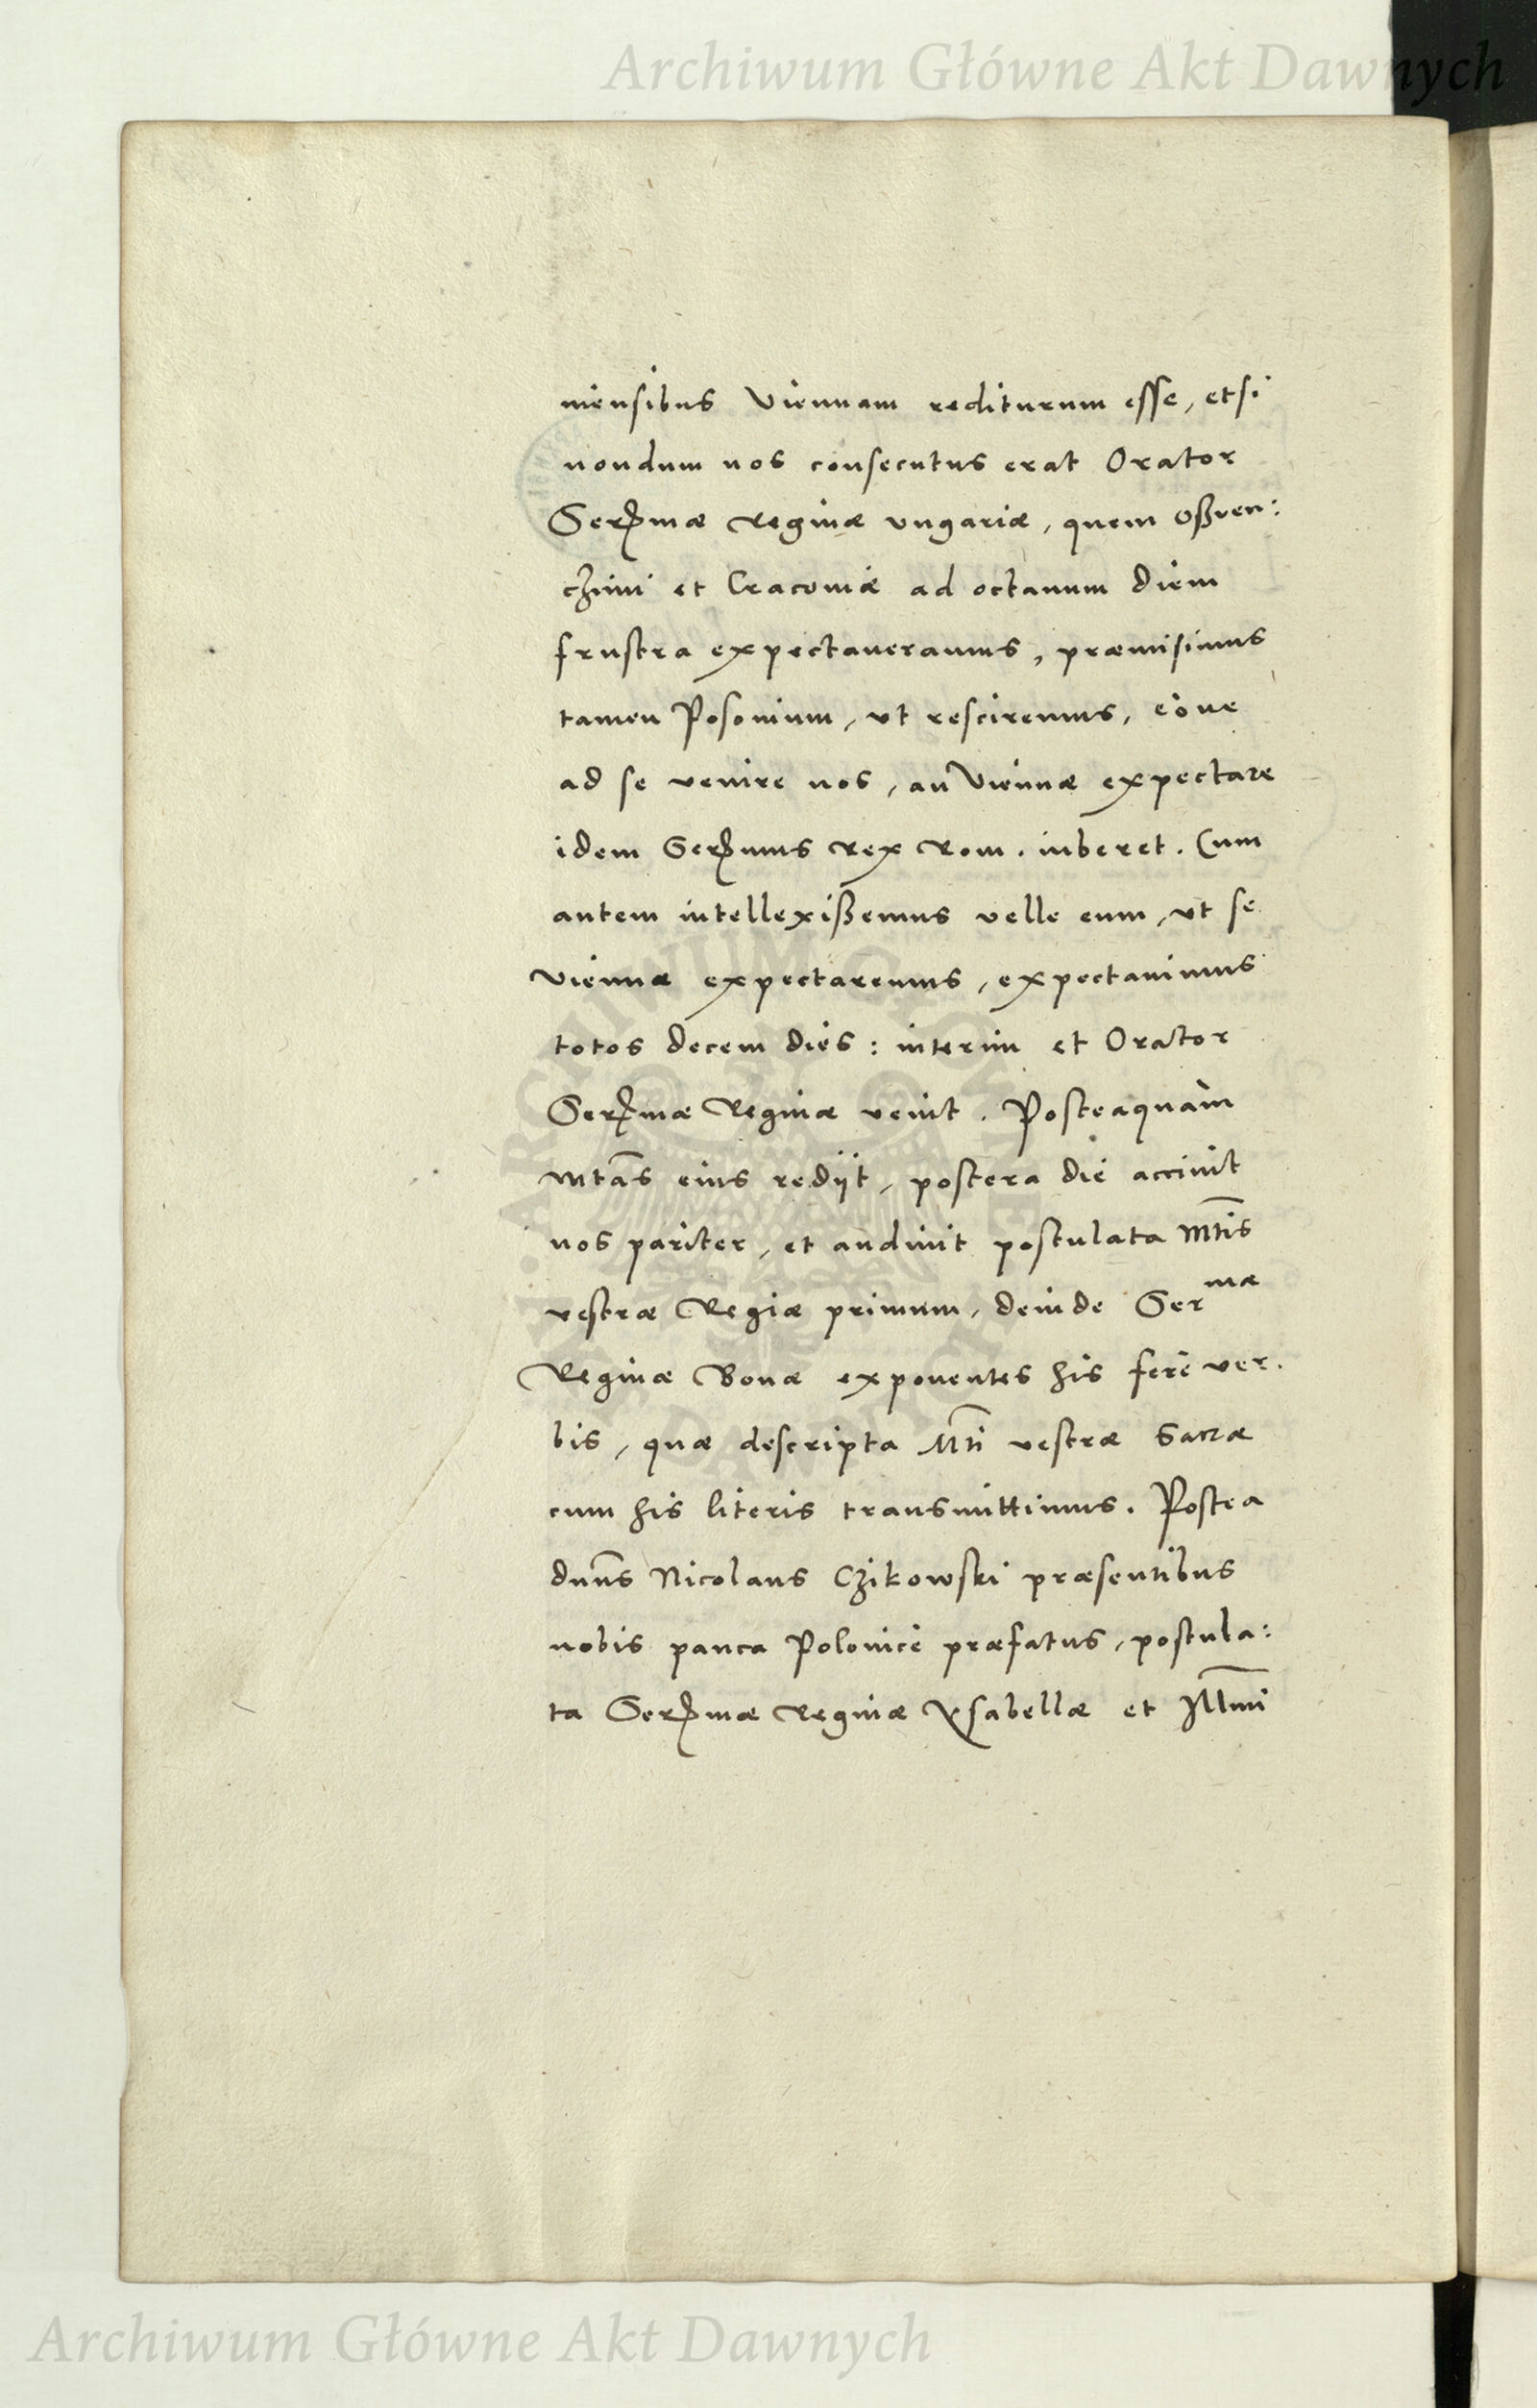 Archiwum Główne Akt Dawnych
mensibus Viennam rediturum esse, etsi
nondum nos consecutus erat Orator
Serᵐmæ Reginæ Vngariæ, quem Oßven:
czimi et Cracouiæ ad octauum diem
frustra expectaueramus, præmisimus
tamen Posonium, vt resciremus, eóne
ad se venire nos, an Viennæ expectare
idem Serᵐmus Rex Rom. iuberet. Cum
autem intellexißemus velle eum, vt se
Viennæ expectaremus, expectauimus
totos decem dies: interim et Orator
Serᵐmæ Reginæ venit. Posteaquam
Mtas eius redijt, postera die acciuit
nos pariter, et audiuit postulata Mtis
vestræ Regiæ primum, deinde Serᵐᵃᵉ
Reginæ Bonæ exponentes his ferè ver.
bis, quæ descripta Mti vestræ Sacræ
cum his literis transmittimus. Postea
dnns Nicolaus Czikowski præsentibus
nobis pauca Polonicè præfatus, postula:
ta Serᵐmæ Reginæ Ysabellæ et Illmi
Archiwum Główne Akt Dawnych